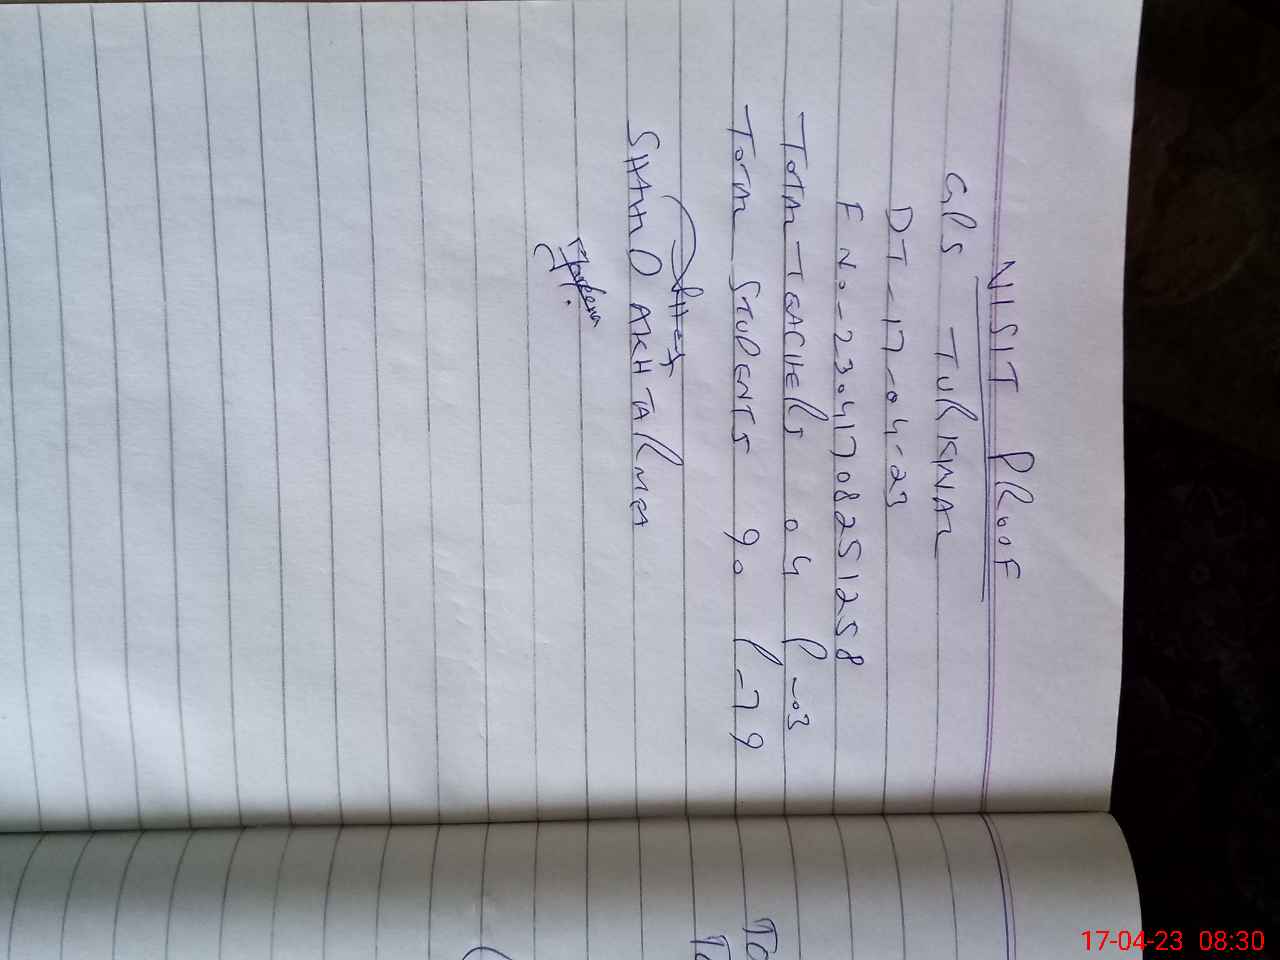 VISIT PROOF
GPS TURKNAZ
DT-17-04-23
F No-23041708251258
TOTAL TEACHERS 04 P-03
TOTAL STUDENTS 90 P-79
SHAHID AKHTAR
To
17-04-23 08:30